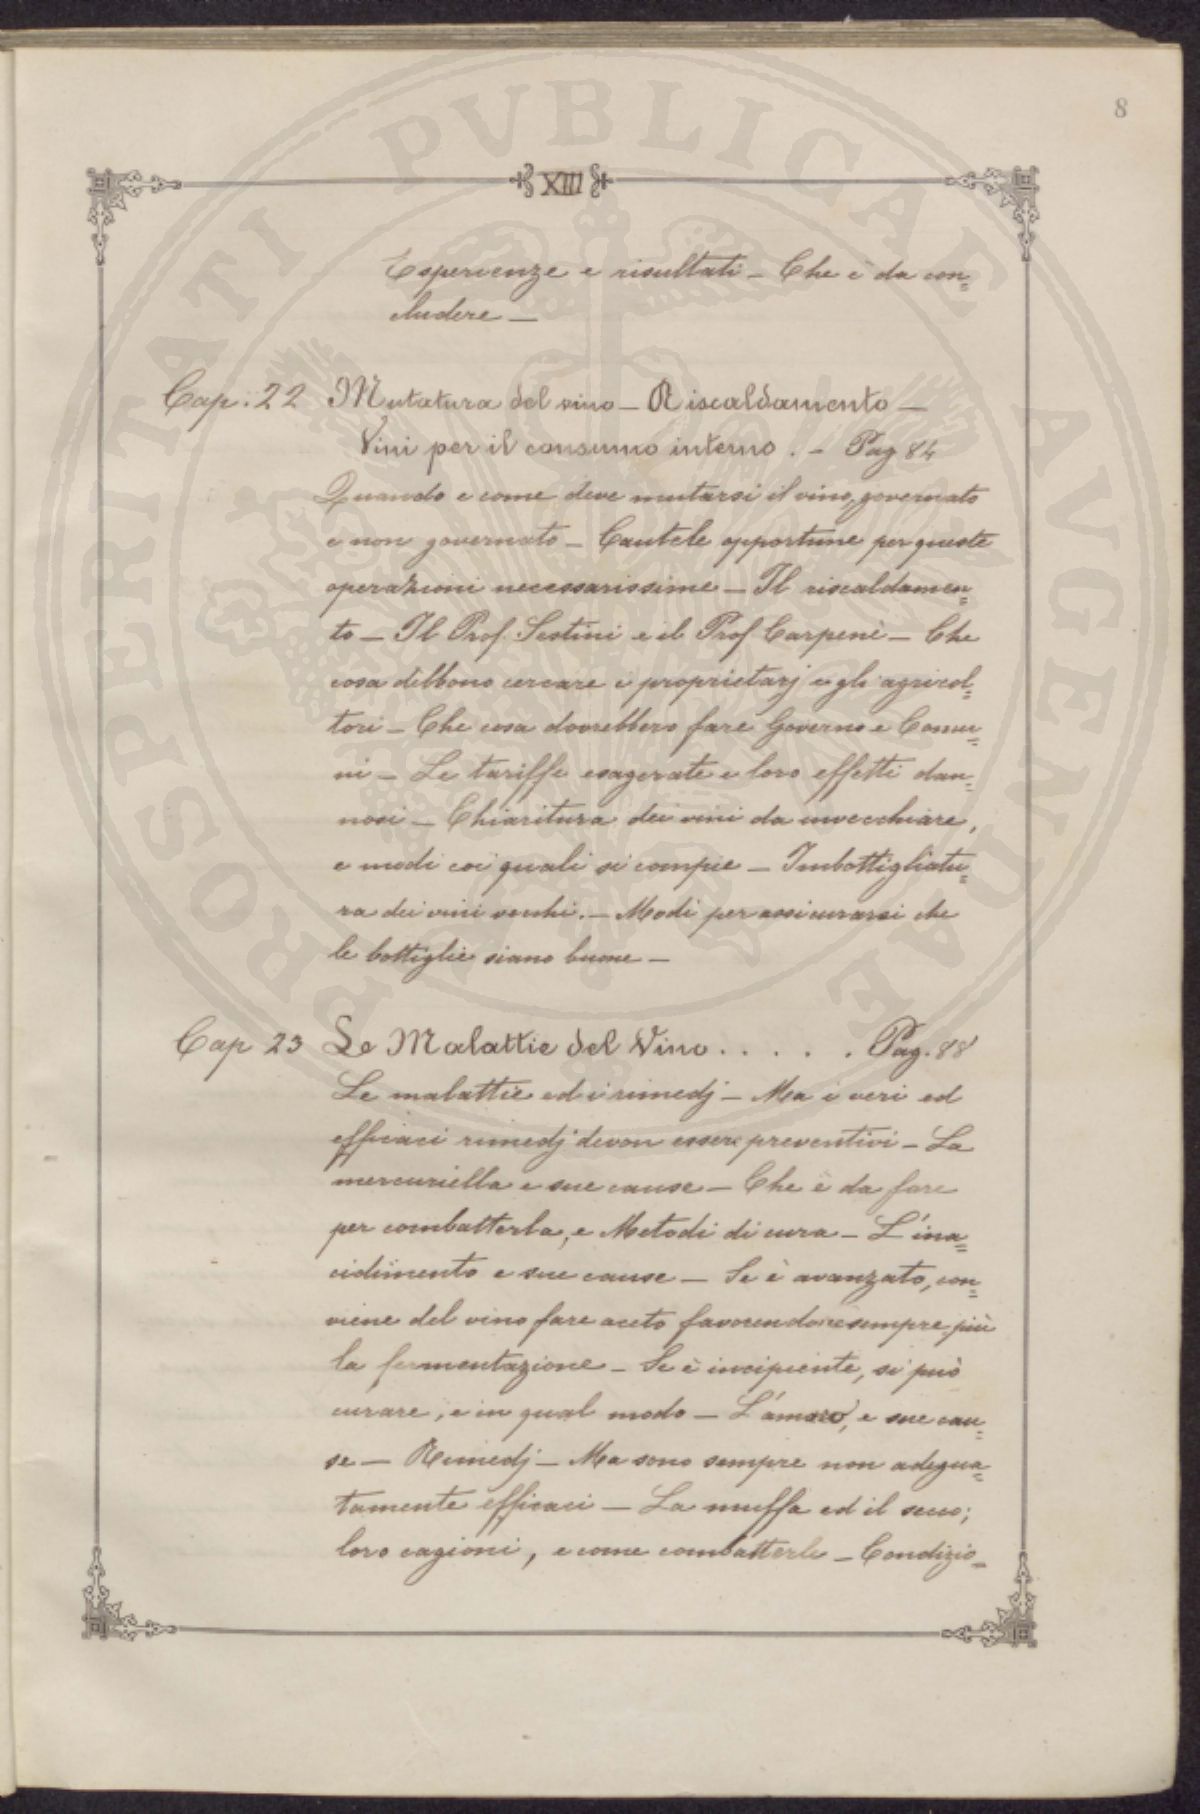 8
XIII
Esperienze e risultati – Che è da con=
cludere –
Cap: 22 Mutatura del vino – Riscaldamento –
Vini per il consumo interno. – Pag 84
Quando e come deve mutarsi il vino, governato
e non governato – Cautele opportune per queste
operazioni necessarissime – Il riscaldamen=
to – Il Prof. Sestini e il Prof Carpenè – Che
cosa debbono cercare i proprietarj e gli agricol=
tori – Che cosa dovrebbero fare Governo e Comu=
ni – Le tariffe esagerate e loro effetti dan=
nosi – Chiaritura dei vini da invecchiare,
e modi coi quali si compie – Imbottigliatu=
ra dei vini vecchi. – Modi per assicurarsi che
le bottiglie siano buone –
Cap 23 Le Malattie del Vino . . . . . Pag. 88
Le malattie ed i rimedj – Ma i veri ed
efficaci rimedj devon essere preventivi – La
mercuriella e sue cause – Che è da fare
per combatterla, e Metodi di cura – L'ina=
cidimento e sue cause – Se è avanzato, con=
viene del vino fare aceto favorendone sempre più
la fermentazione – Se è incipiente, si può
curare, e in qual modo – L'amaro, e sue cau=
se – Rimedj – Ma sono sempre non adegua=
tamente efficaci – La muffa ed il secco;
loro cagioni, e come combatterli – Condizio=
PROSPERITATI PVBLICAE AVGENDAE